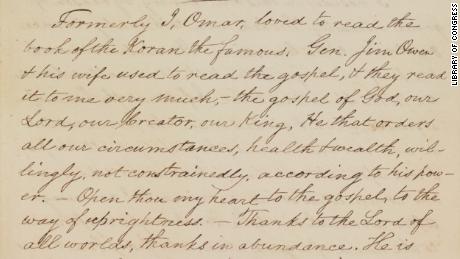 Formerly I, Omar, loved to read the
book of the Koran the famous. Gen. Jim Owen
& his wife used to read the gospel, & they read
it to me very much,—the gospel of God, our
Lord, our Creator, our King, He that orders
all our circumstances, health & wealth, wil-
lingly, not constrainedly, according to his pow-
er. — Open thou my heart to the gospel, to the
way of uprightness. — Thanks to the Lord of
all worlds, thanks in abundance. He is
LIBRARY OF CONGRESS